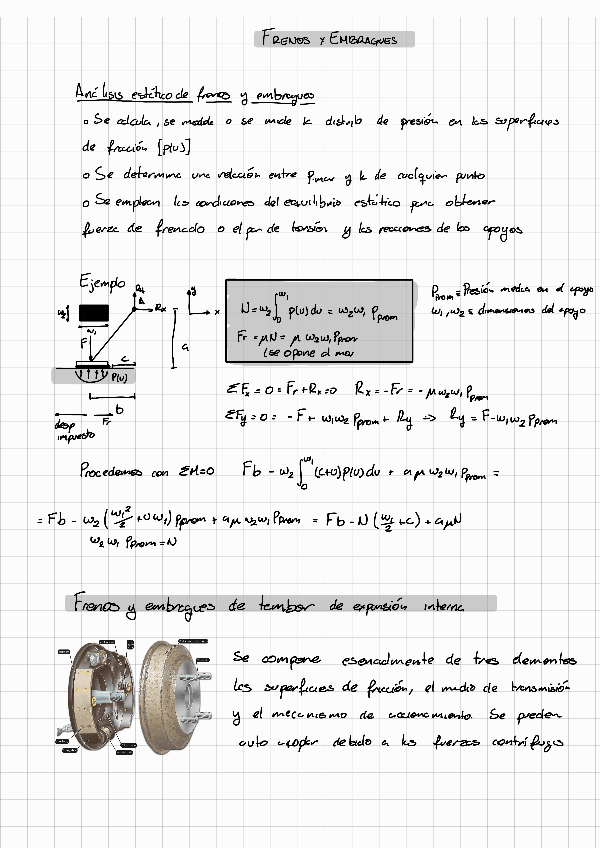 FRENOS Y EMBRAGUES
Análisis estático de frenos y embragues
o Se calcula, se modela o se mide la distrib de presión en las superficies
de fricción [p(u)]
o Se determina una relación entre pmax y la de cualquier punto
o Se emplean las condiciones del equilibrio estático para obtener
fuerza de frenado o el par de torsión y las reacciones de los apoyos
Ejemplo
Ry
A
Rx
y
x
w2
w1
F
a
c
P(u)
b
Fr
desp
impuesto
N = w2 ∫₀^w1 p(u) du = w2 w1 Pprom
Fr = μN = μ w2 w1 Pprom
(se opone al mov
Pprom = Presión media en el apoyo
w1, w2 = dimensiones del apoyo
ΣFx = 0 = Fr + Rx = 0 Rx = -Fr = -μ w2 w1 Pprom
ΣFy = 0 = -F + w1 w2 Pprom + Ry ⇒ Ry = F - w1 w2 Pprom
Procedemos con ΣM=0 Fb - w2 ∫₀^w1 (c+u) p(u) du + a μ w2 w1 Pprom =
= Fb - w2 (w1²/2 + c w1) Pprom + a μ w2 w1 Pprom = Fb - N (w1/2 + c) + a μ N
w2 w1 Pprom = N
Frenos y embragues de tambor de expansión interna
Se compone esencialmente de tres elementos
las superficies de fricción, el medio de transmisión
y el mecanismo de accionamiento. Se pueden
auto acoplar debido a las fuerzas centrífugas